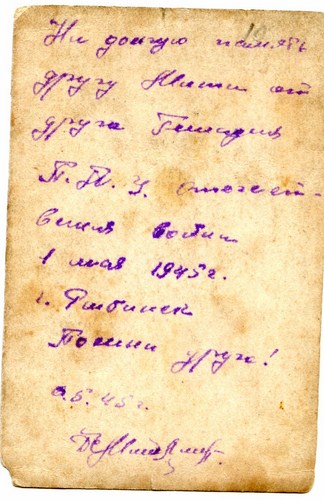 На долгую память
другу Мите от
друга Геннадия
П.П.У. отечест-
венная война
1 мая 1945 г.
г. Рыбинск
Помни друга!
5.45 г.